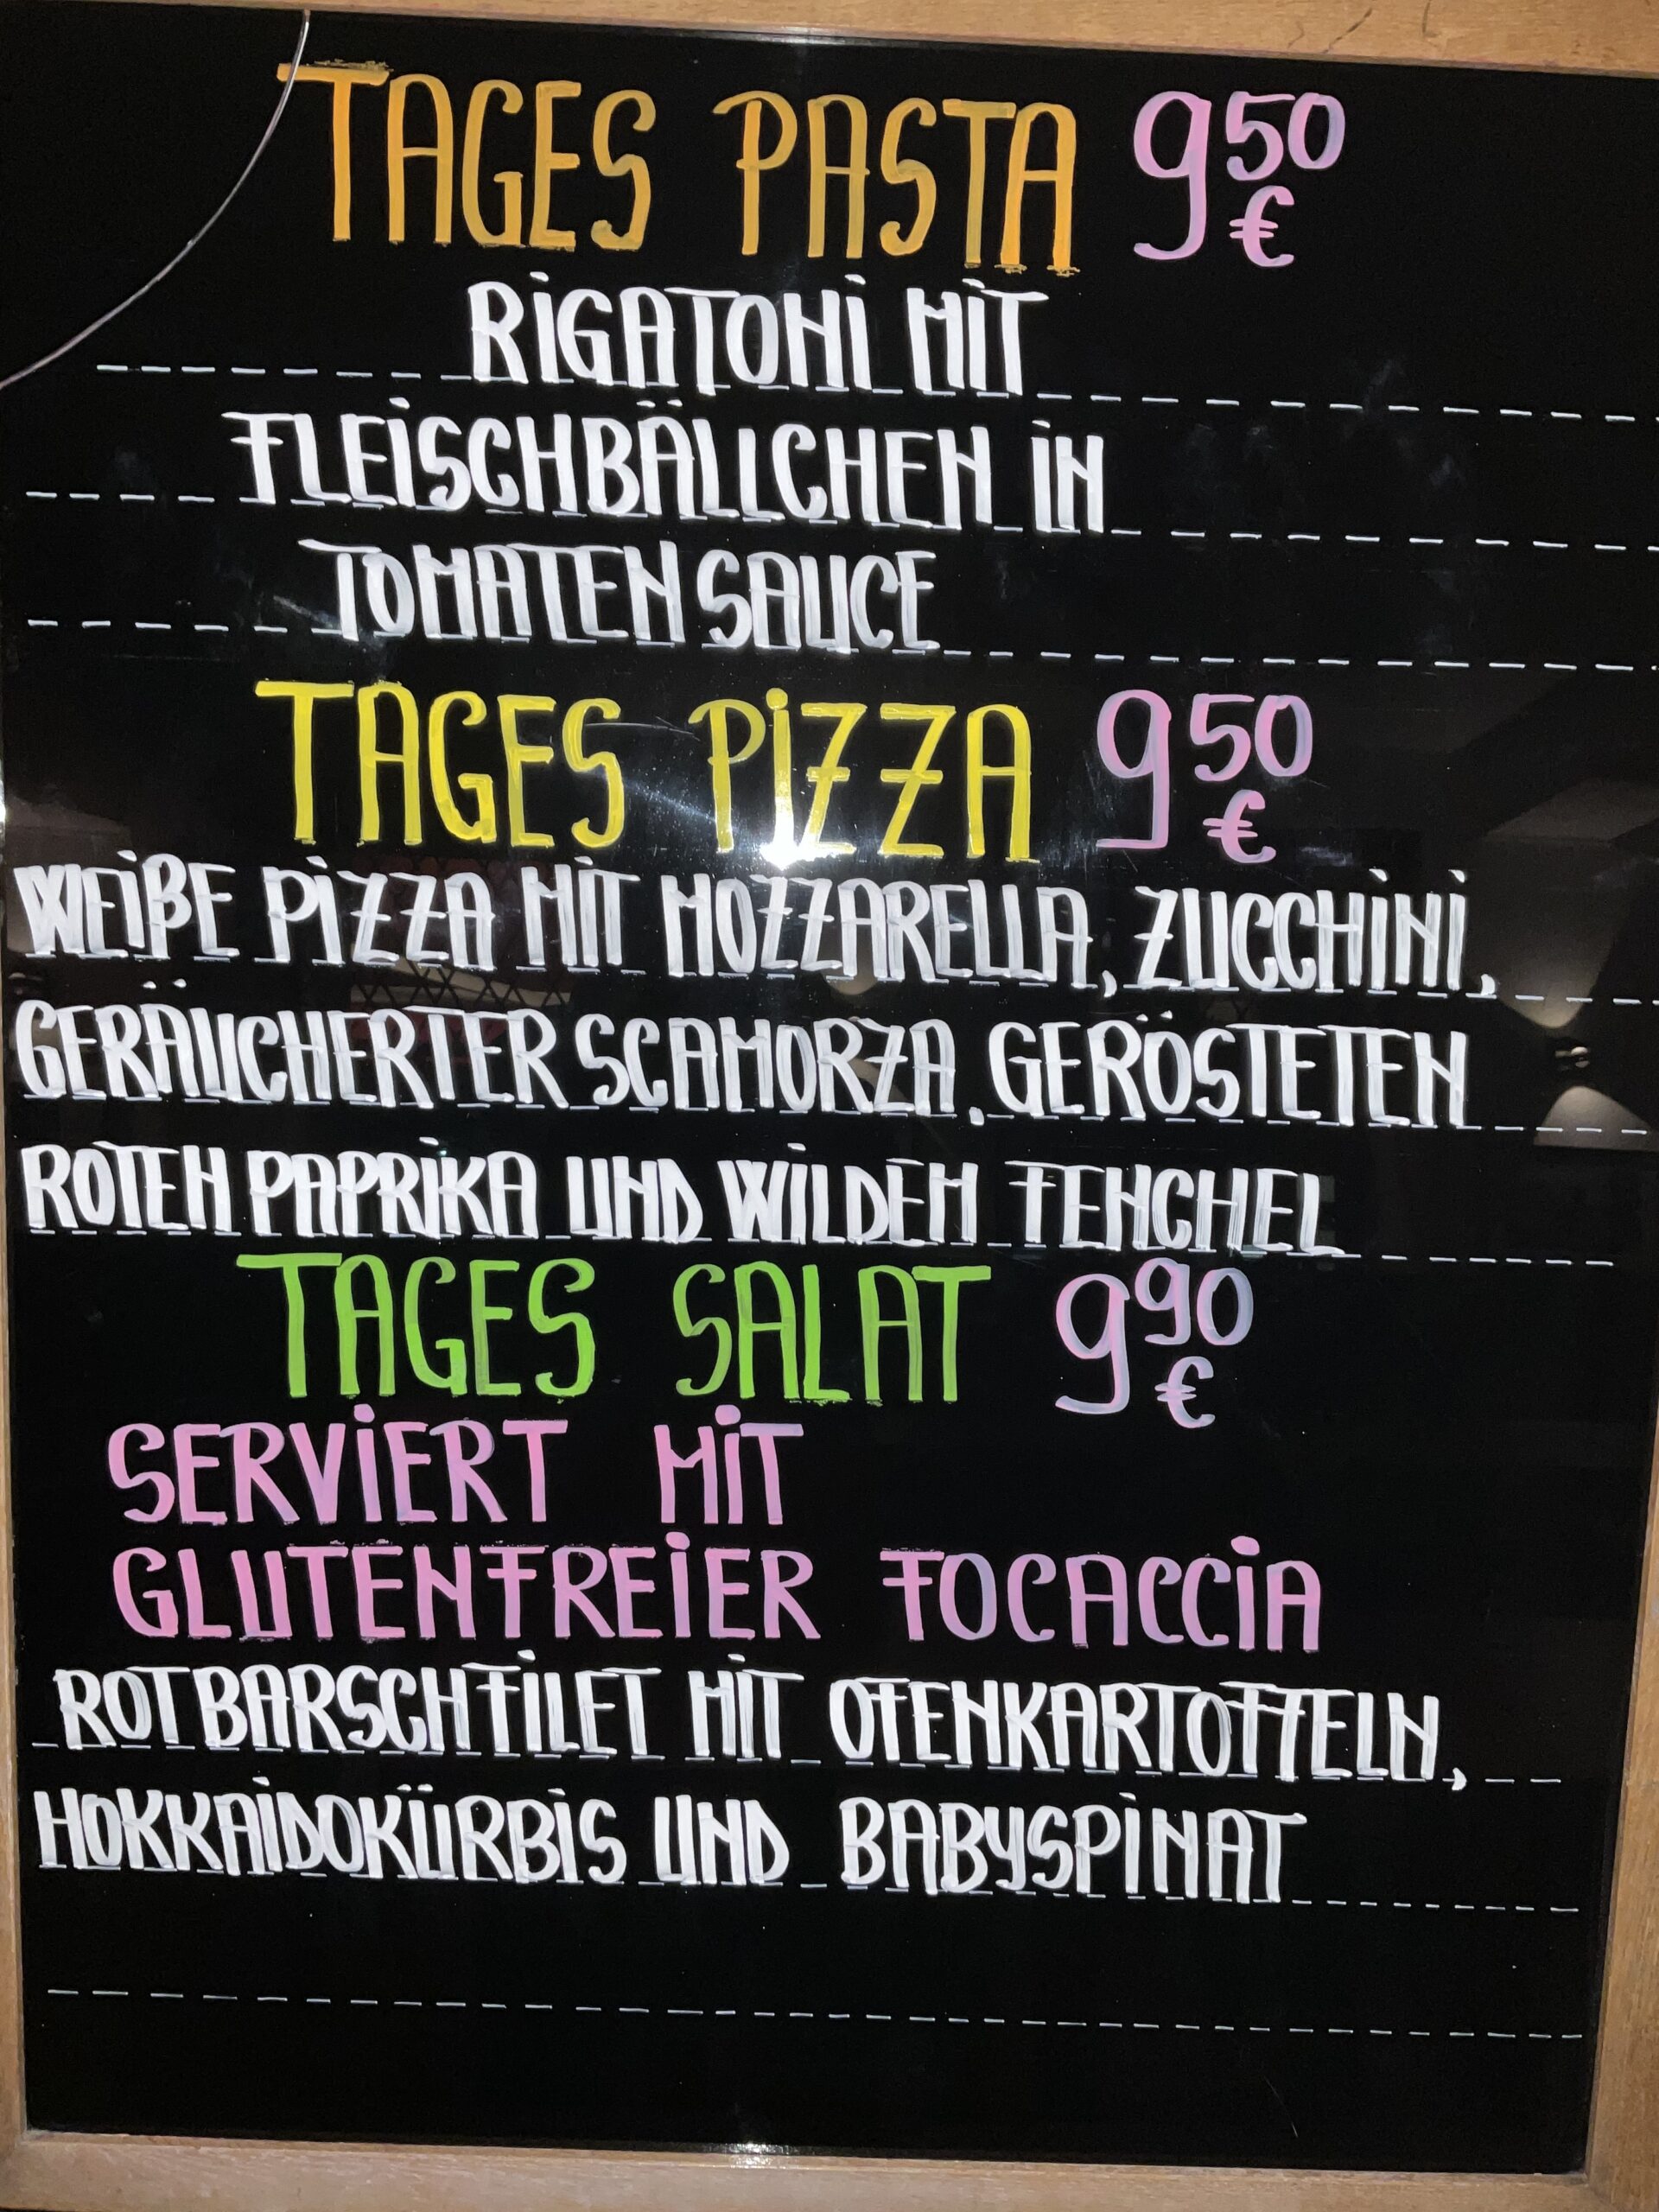 TAGES PASTA 9⁵⁰ €
RiGATONi MiT
FLEiSCHBÄLLCHEN iN
TOMATENSAUCE
TAGES PiZZA 9⁵⁰ €
WEißE PiZZA MiT MOZZARELLA, ZUCCHiNi,
GERÄUCHERTER SCAMORZA, GERÖSTETEN
ROTEN PAPRiKA UND WiLDEM FENCHEL
TAGES SALAT 9⁹⁰ €
SERViERT MiT
GLUTENFREiER FOCACCiA
ROTBARSCHFiLET MiT OFENKARTOFFELN,
HOKKAiDOKÜRBiS UND BABYSPiNAT